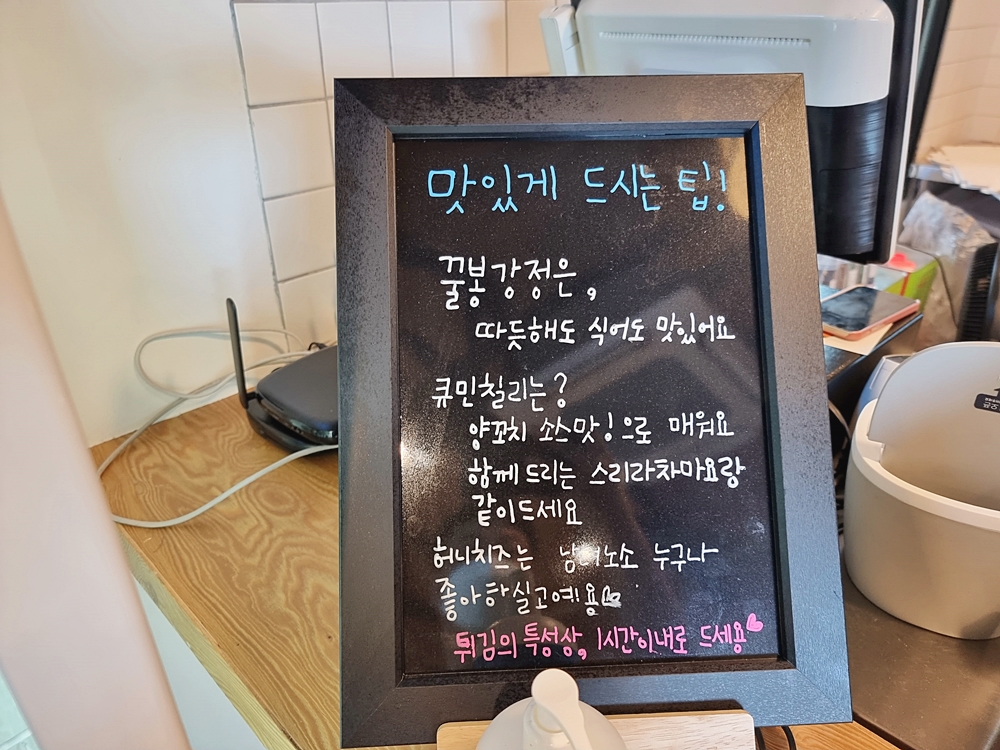 맛있게 드시는 팁!
꿀봉강정은,
따듯해도 식어도 맛있어요
큐민칠리는?
양꼬치 소스맛!으로 매워요
함께드리는 스리라차마요랑
같이드세요
허니치즈는 남녀노소 누구나
좋아하실고예!용
튀김의 특성상, 1시간이내로 드세용♥